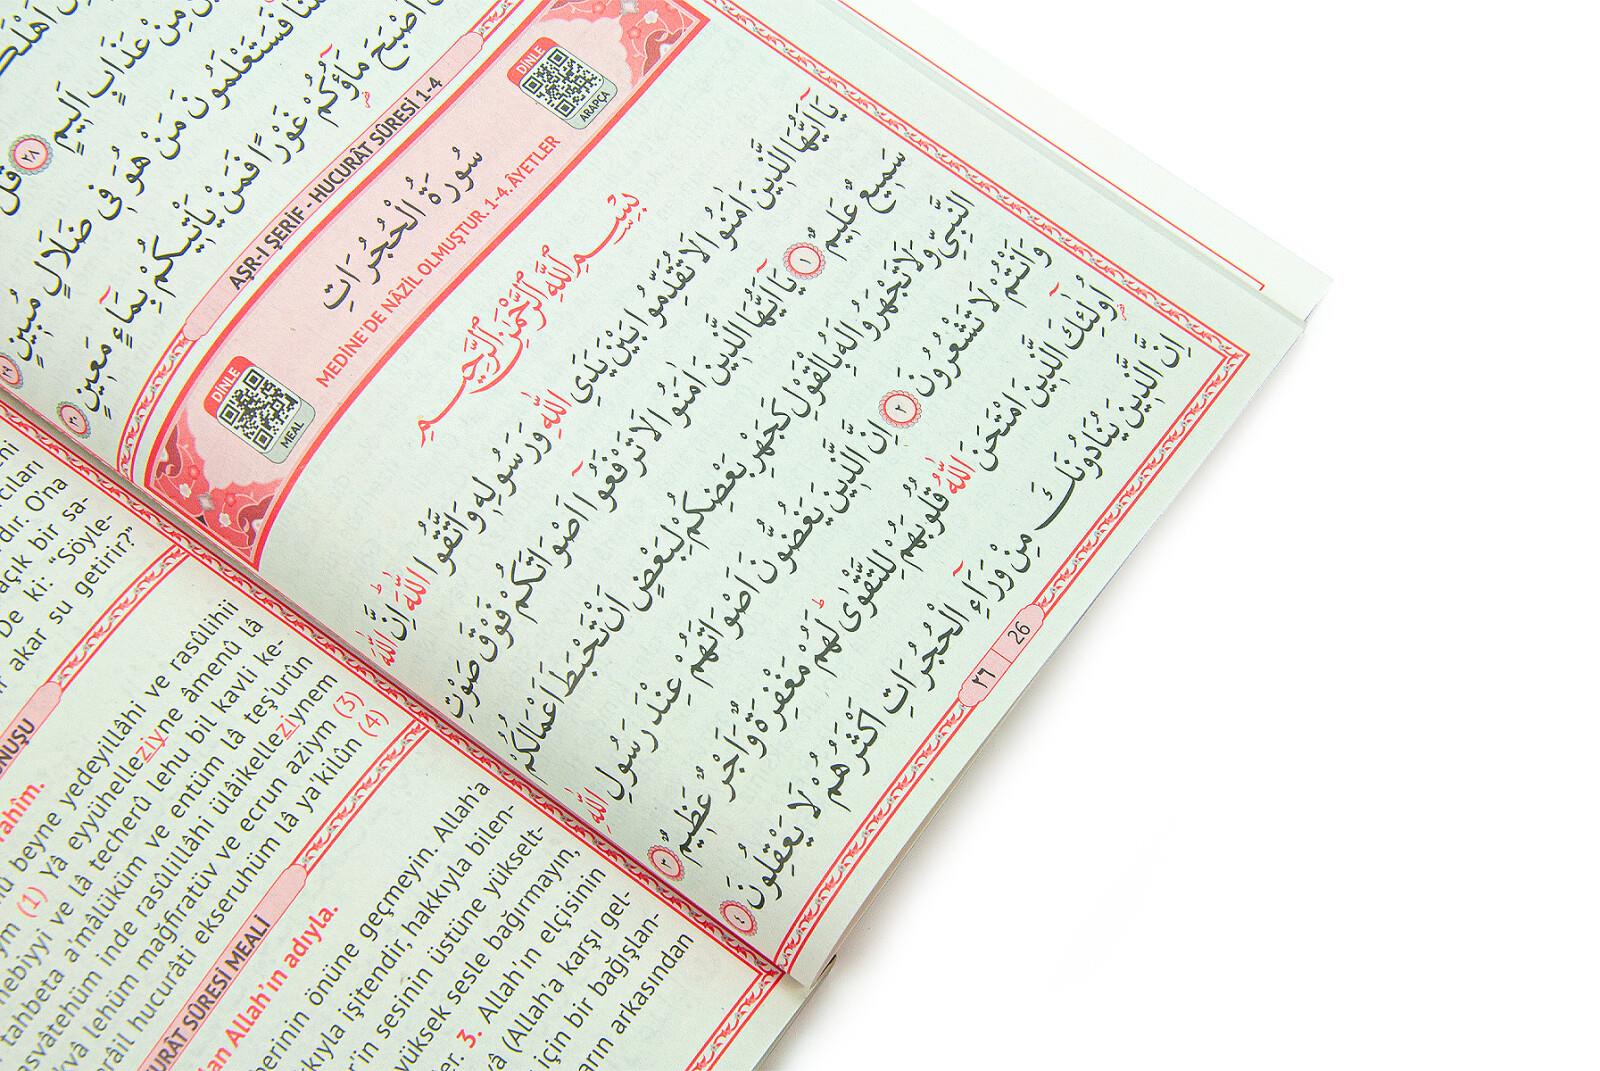 اَهْلَكَ
مِنْ عَذَابٍ اَلِيمٍ ٢٨ قُلْ
فَسَتَعْلَمُونَ مَنْ هُوَ فِى ضَلَالٍ مُبِينٍ ٢٩
اَصْبَحَ مَٓاؤُكُمْ غَوْرًا فَمَنْ يَأْتِيكُمْ بِمَٓاءٍ مَعِينٍ ٣٠
AŞR-I ŞERİF - HUCURÂT SÛRESİ 1-4
DİNLE
ARAPÇA
سُورَةُ الْحُجُرَاتِ
MEDİNE'DE NÂZİL OLMUŞTUR. 1-4. ÂYETLER
DİNLE
MEAL
بِسْمِ اللّٰهِ الرَّحْمٰنِ الرَّحِيمِ
يَٓا اَيُّهَا الَّذِينَ اٰمَنُوا لَا تُقَدِّمُوا بَيْنَ يَدَىِ اللّٰهِ وَرَسُولِهِ وَاتَّقُوا اللّٰهَ اِنَّ اللّٰهَ
سَمِيعٌ عَلِيمٌ ١ يَٓا اَيُّهَا الَّذِينَ اٰمَنُوا لَا تَرْفَعُٓوا اَصْوَاتَكُمْ فَوْقَ صَوْتِ
النَّبِىِّ وَلَا تَجْهَرُوا لَهُ بِالْقَوْلِ كَجَهْرِ بَعْضِكُمْ لِبَعْضٍ اَنْ تَحْبَطَ اَعْمَالُكُمْ
وَاَنْتُمْ لَا تَشْعُرُونَ ٢ اِنَّ الَّذِينَ يَغُضُّونَ اَصْوَاتَهُمْ عِنْدَ رَسُولِ اللّٰهِ
اُولٰٓئِكَ الَّذِينَ امْتَحَنَ اللّٰهُ قُلُوبَهُمْ لِلتَّقْوٰى لَهُمْ مَغْفِرَةٌ وَاَجْرٌ عَظِيمٌ ٣
اِنَّ الَّذِينَ يُنَادُونَكَ مِنْ وَرَٓاءِ الْحُجُرَاتِ اَكْثَرُهُمْ لَا يَعْقِلُونَ ٤
٢٦ | 26
cıları
dır. O'na
açık bir sa-
De ki: "Söyle-
akar su getirir?"
beyne yedeyillâhi ve rasûlihii
(1) Yâ eyyühelleziyne âmenû lâ
nebiyyi ve lâ techerû lehu bil kavli ke-
tahbeta a'mâlüküm ve entüm lâ teş'urûn
asvâtehüm inde rasûlillâhi ülâikelleziynem
lehüm mağfiratüv ve ecrun aziym (3)
hucurâti ekseruhüm lâ ya'kilûn (4)
SÛRESİ MEALİ
Allah'ın adıyla.
önüne geçmeyin. Allah'a
işitendir, hakkıyla bilen-
sesinin üstüne yükselt-
yüksek sesle bağırmayın,
3. Allah'ın elçisinin
(Allah'a karşı gel-
için bir bağışlan-
arkasından